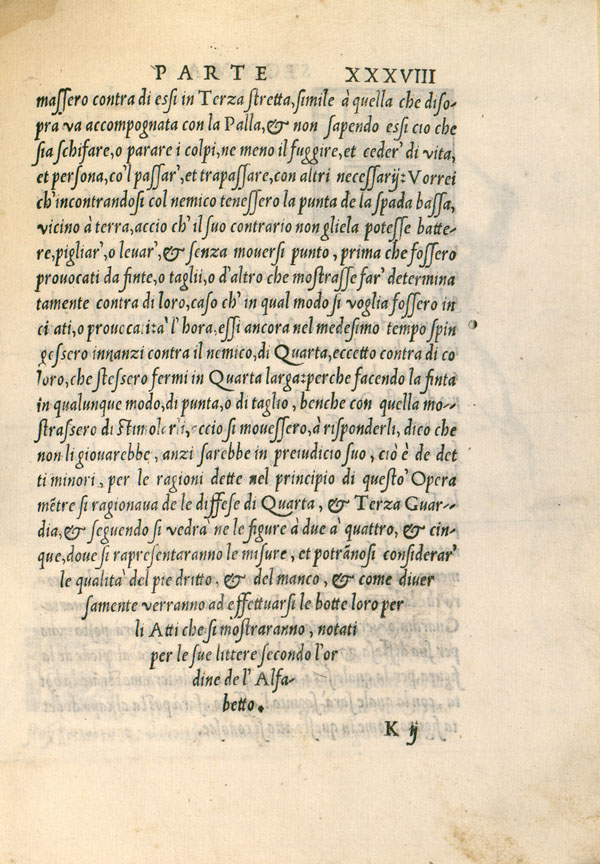 PARTE XXXVIII
maſſero contra di eſſi in Terza ſtretta, ſimile à quella che diſo-
pra va accompognata con la Palla, & non ſapendo eſſi cio che
ſia ſchifare, o parare i colpi, ne meno il fuggire, et ceder' di vita,
et perſona, co'l paſſar', et trapaſſare, con altri neceſſarij: Vorrei
ch'incontrandoſi col nemico teneſſero la punta de la ſpada baſſa,
vicino à terra, accio ch' il ſuo contrario non gliela poteſſe batte-
re, pigliar', o leuar', & ſenza mouerſi punto, prima che foſſero
prouocati da finte, o taglii, o d'altro che moſtraſſe far' determina
tamente contra di loro, caſo ch' in qual modo ſi voglia foſſero in
ci ati, o prouoca l' hora, eſſi ancora nel medeſimo tempo ſpin
geſſero innanzi contra il nemico, di Quarta, eccetto contra di co
loro, che ſteſſero fermi in Quarta larga: perche facendo la finta
in qualunque modo, di punta, o di taglio, benche con quella mo-
ſtraſſero di ſi moueſſero, à riſponderli, dico che
non li giouarebbe, anzi ſarebbe in preiudicio ſuo, ciò è de det
ti minori, per le ragioni dette nel principio di queſto' Opera
mẽtre ſi ragionaua de le diffeſe di Quarta, & Terza Guar-
dia, & ſeguendo ſi vedrà ne le figure à due à quattro, & cin-
que, doue ſi rapreſentaranno le miſure, et potrãnoſi conſiderar'
le qualita del pie dritto, & del manco, & come diuer
ſamente verranno ad effettuarſi le botte loro per
li Atti che ſi moſtraranno, notati
per le ſue littere ſecondo l'or
dine de l' Alfa-
betto.
K ij